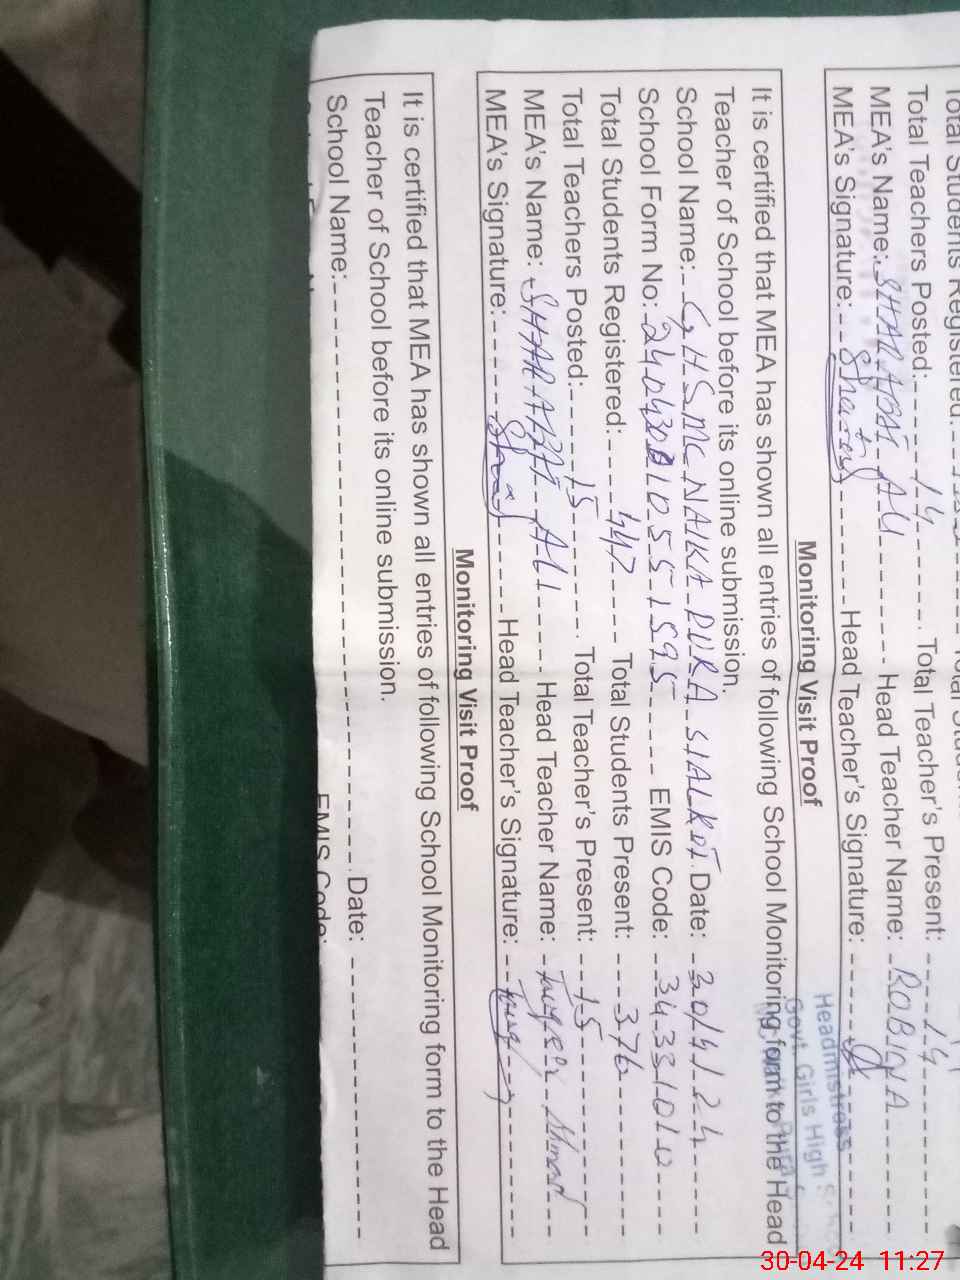 Total Students Registered:
Total Teachers Posted: 14 Total Teacher's Present: 14
MEA's Name: SHARAFAT ALI Head Teacher Name: ROBINA
MEA's Signature: Head Teacher's Signature:
Headmistress
Govt. Girls High
Monitoring Visit Proof
It is certified that MEA has shown all entries of following School Monitoring form to the Head
Teacher of School before its online submission.
School Name: GHSMC NAIKA PURA SIALKOT Date: 30/4/24
School Form No: EMIS Code:
Total Students Registered: 447 Total Students Present: 376
Total Teachers Posted: 15 Total Teacher's Present: 15
MEA's Name: SHARAFAT ALI Head Teacher Name: Ahmad
MEA's Signature: Head Teacher's Signature:
Monitoring Visit Proof
It is certified that MEA has shown all entries of following School Monitoring form to the Head
Teacher of School before its online submission.
School Name: Date:
EMIS Code:
30-04-24 11:27